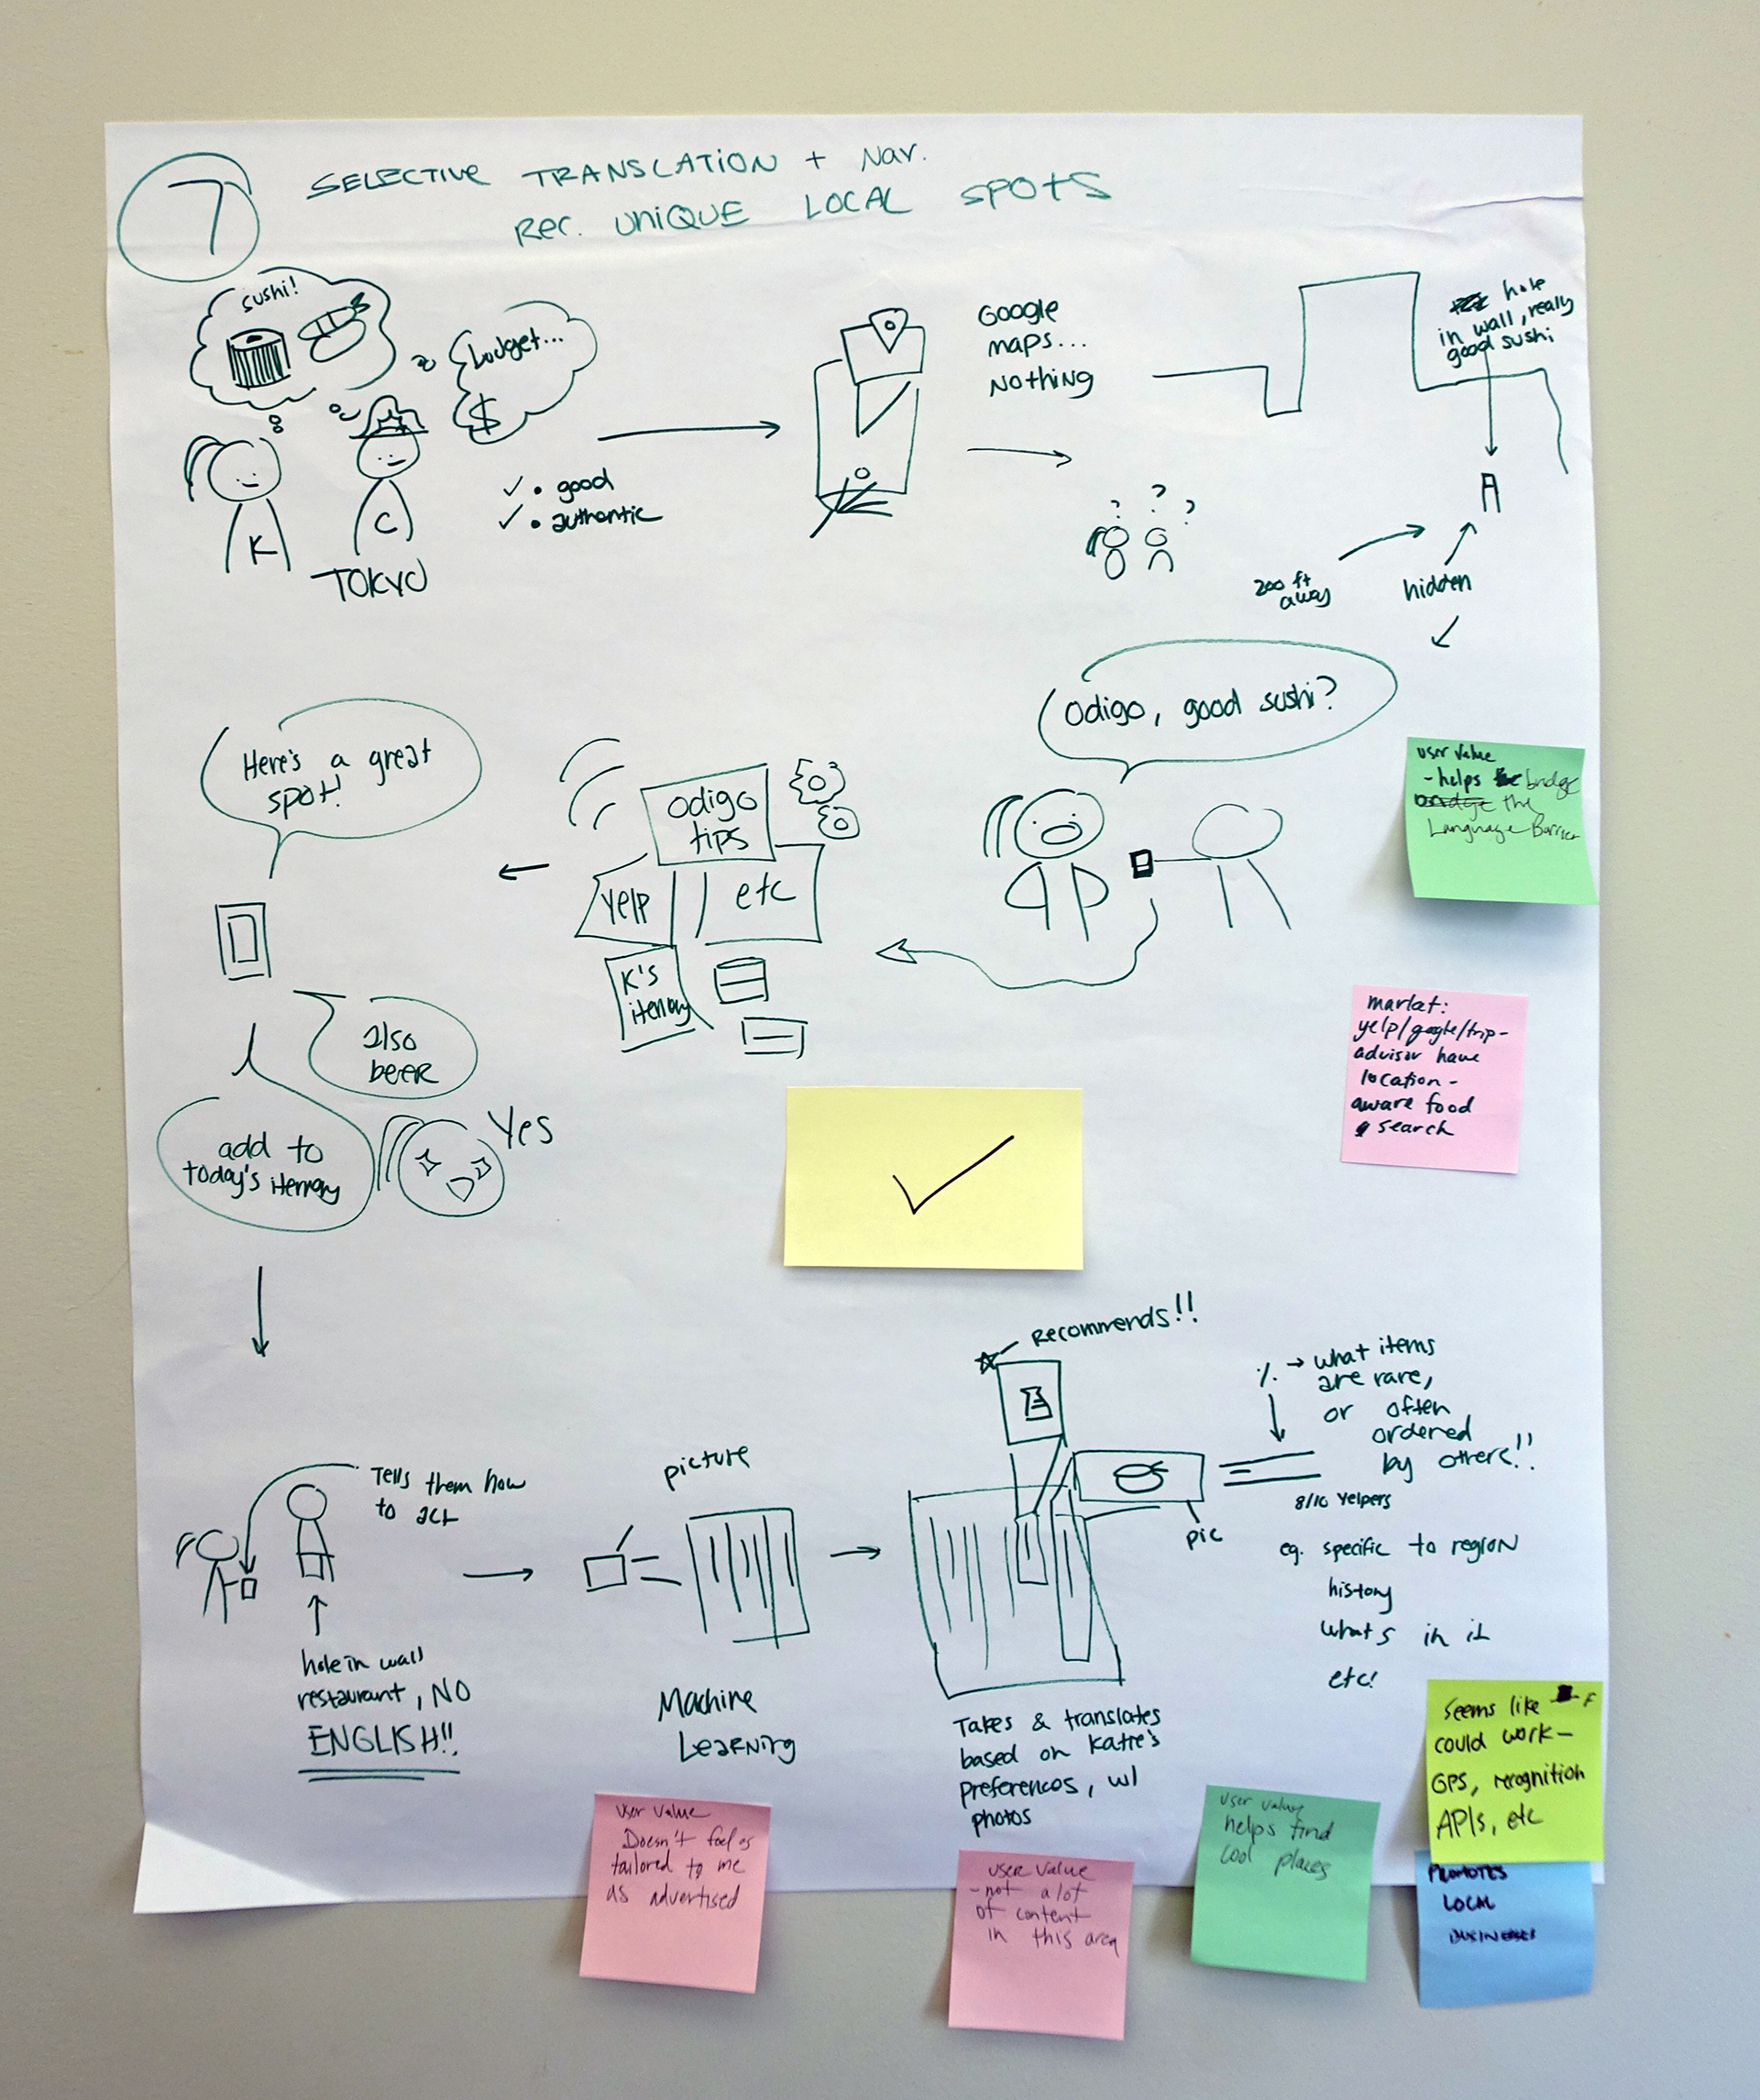 7
SELECTIVE TRANSLATION + Nav.
Rec. UNIQUE LOCAL SPOTS
sushi!
budget...
$
K
C
TOKYO
✓ • good
✓ • authentic
Google
maps...
NOTHING
hole
in wall, really
good sushi
? ? ?
200 ft
away
hidden
odigo, good sushi?
odigo
tips
yelp
etc
K's
Here's a great
spot!
also
beer
add to
today's
Yes
User Value
- helps bridge
the
Language Barrier
market:
yelp/google/trip-
advisor have
location-
aware food
search
✓
Tells them how
to act
hole in wall
restaurant, NO
ENGLISH!!
picture
Machine
Learning
Recommends!!
pic
Takes & translates
based on Katie's
preferences, w/
photos
% → what items
are rare,
or often
ordered
by others!!
8/10 Yelpers
eg. specific to region
history
what's in it
etc!
User Value
Doesn't feel as
tailored to me
as advertised
User Value
- not a lot
of content
in this area
User Value
helps find
cool places
Seems like
could work —
GPS, recognition
APIs, etc
PROMOTES
LOCAL
BUSINESSES